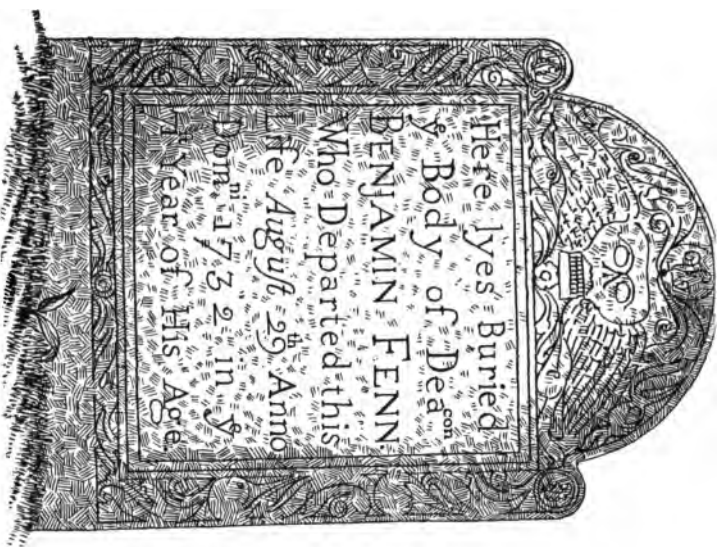 Here lyes Buried
yᵉ Body of Deaᶜᵒⁿ
BENJAMIN FENN
Who Departed this
Life Auguſt 29ᵗʰ Anno
Domⁿⁱ 1732 in yᵉ
year of His Age